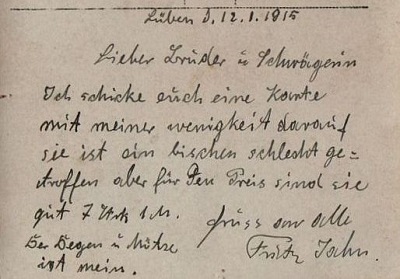 Lüben d. 12.1.1915
Lieber Brüder u Schwägerin
Ich schicke euch eine Karte
mit meiner wenigkeit darauf
sie ist ein bischen schlecht ge=
troffen aber für Den Preis sind sie
gut 7 Stk 1 M. Gruss an alle
Der Degen u Mütze Fritz Jahn.
ist mein.